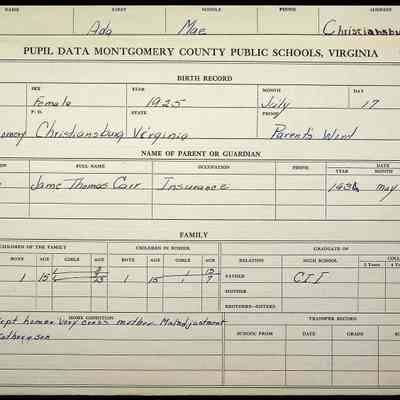 NAME FIRST MIDDLE PHONE ADDRESS
Ada Mae Christiansbu
PUPIL DATA MONTGOMERY COUNTY PUBLIC SCHOOLS, VIRGINIA
BIRTH RECORD
SEX YEAR MONTH DAY
Female 1925 July 17
P. O. STATE PROOF
omery Christiansburg Virginia Parents Word
NAME OF PARENT OR GUARDIAN
ION FULL NAME OCCUPATION PHONE DATE
YEAR MONTH
Jame Thomas Carr Insurance 1936 May
FAMILY
CHILDREN OF THE FAMILY CHILDREN IN SCHOOL GRADUATE OF
BOYS AGE GIRLS AGE BOYS AGE GIRLS AGE RELATION HIGH SCHOOL COLL
2 Years 4 Y
1 15 1 15 FATHER CII
MOTHER
BROTHERS—SISTERS
HOME CONDITION TRANSFER RECORD
Kept home. Very cross mother. Maladjustment
SCHOOL FROM DATE GRADE